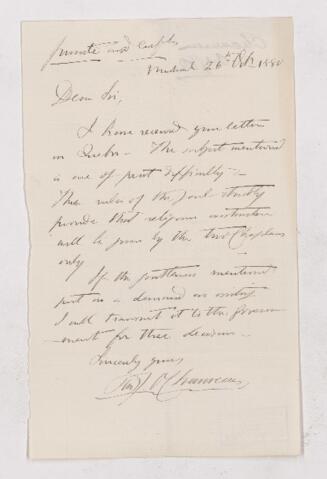 private and Confid.
Montreal 26th Feb 1880
Dear Sir,
I have received your letter
in Quebec. The subject mentioned
is one of great difficulty:-
The rules of the Jail strictly
provide that religious instruction
will be given by the two Chaplains
only
If the gentlemen mentioned
put in a demand in writing
I will transmit it to the Govern-
ment for their decision.
Sincerely yours
Chauveau